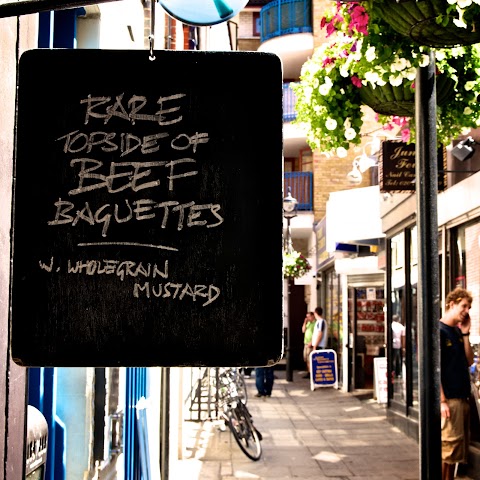 RARE
TOPSIDE OF
BEEF
BAGUETTES
W. WHOLEGRAIN
MUSTARD